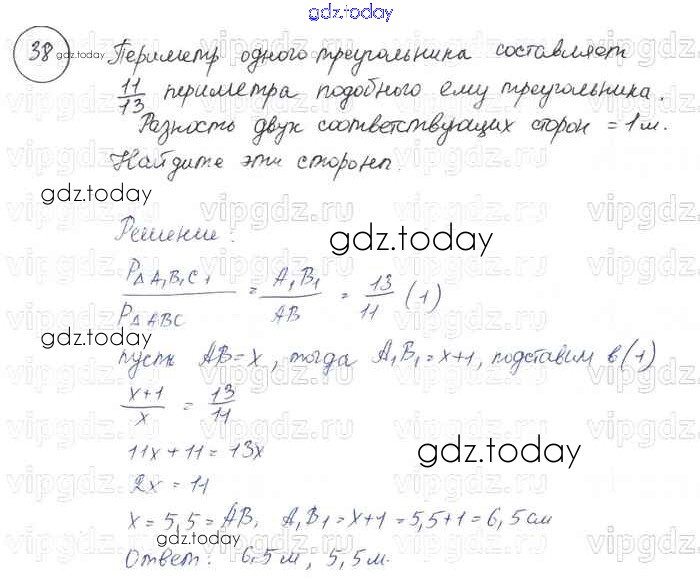 gdz.today
38 gdz.today Периметр одного треугольника составляет
11/13 периметра подобного ему треугольника.
Разность двух соответствующих сторон = 1 м.
Найдите эти стороны.
gdz.today
Решение:
gdz.today
P△A₁B₁C₁/P△ABC = A₁B₁/AB = 13/11 (1)
gdz.today
пусть AB = x, тогда A₁B₁ = x+1, подставим в (1)
(x+1)/x = 13/11
gdz.today
11x + 11 = 13x
2x = 11
x = 5,5 = AB, A₁B₁ = x+1 = 5,5+1 = 6,5 см
gdz.today
Ответ: 6,5 м, 5,5 м.
vipgdz.ru